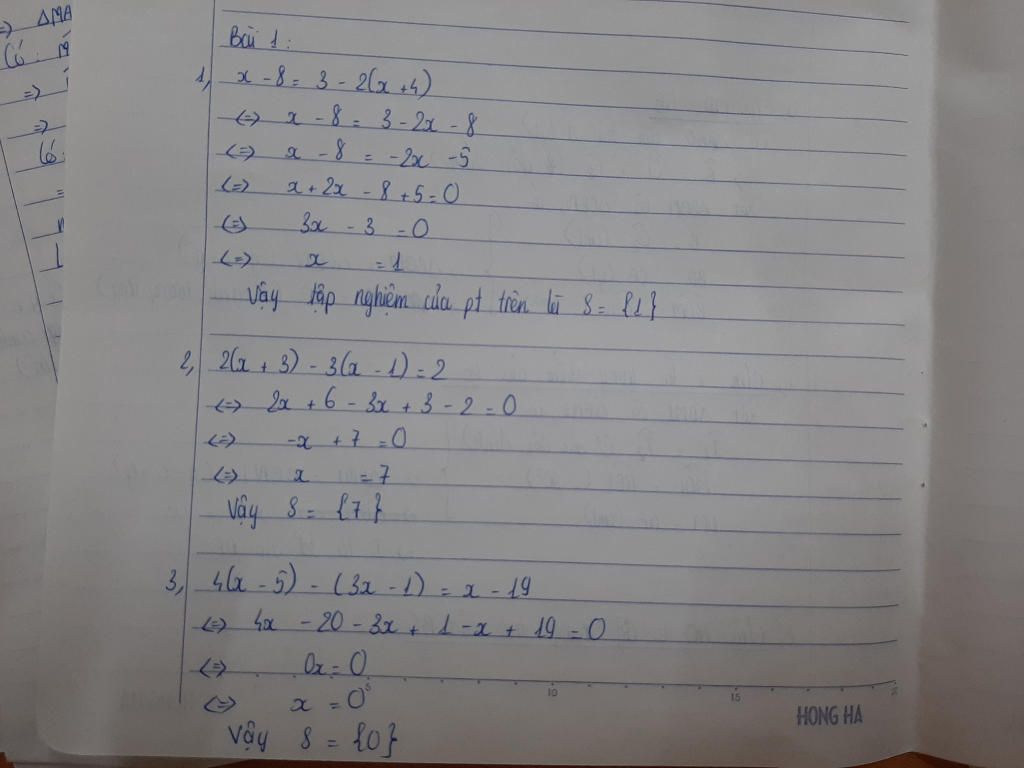 => ΔMA
Có :
=>
=>
Có:
=
Bài 1:
1, x - 8 = 3 - 2(x + 4)
<=> x - 8 = 3 - 2x - 8
<=> x - 8 = -2x - 5
<=> x + 2x - 8 + 5 = 0
<=> 3x - 3 = 0
<=> x = 1
Vậy tập nghiệm của pt trên là S = {1}
2, 2(x + 3) - 3(x - 1) = 2
<=> 2x + 6 - 3x + 3 - 2 = 0
<=> -x + 7 = 0
<=> x = 7
Vậy S = {7}
3, 4(x - 5) - (3x - 1) = x - 19
<=> 4x - 20 - 3x + 1 - x + 19 = 0
<=> 0x = 0
<=> x = 0
5 10 15
HONG HA
Vậy S = {0}